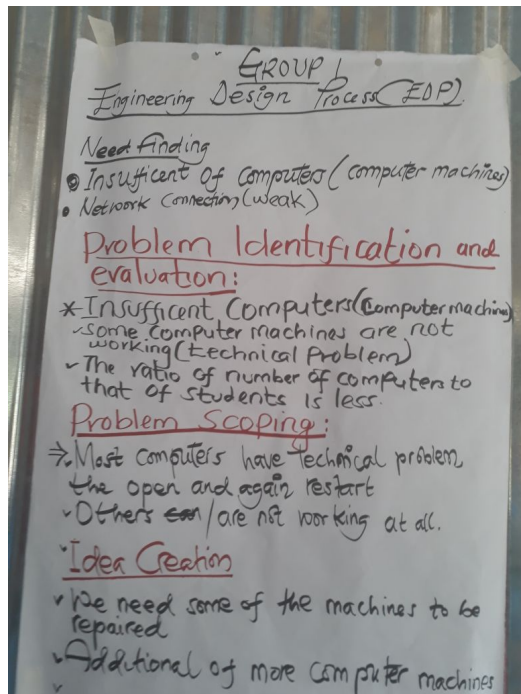 GROUP 1
Engineering Design Process (EDP)
Need finding
• Insufficent of computers (computer machines)
• Network Connection (weak)
Problem Identification and
evaluation:
* Insufficent Computers (Computer machine)
✓ Some computer machines are not
working (technical problem)
✓ The ratio of number of computers to
that of students is less.
Problem Scoping:
⇒ ✓ Most computers have technical problem
the open and again restart
✓ Others can / are not working at all.
✓ Idea Creation
✓ We need some of the machines to be
repaired
✓ Additional of more computer machines
✓